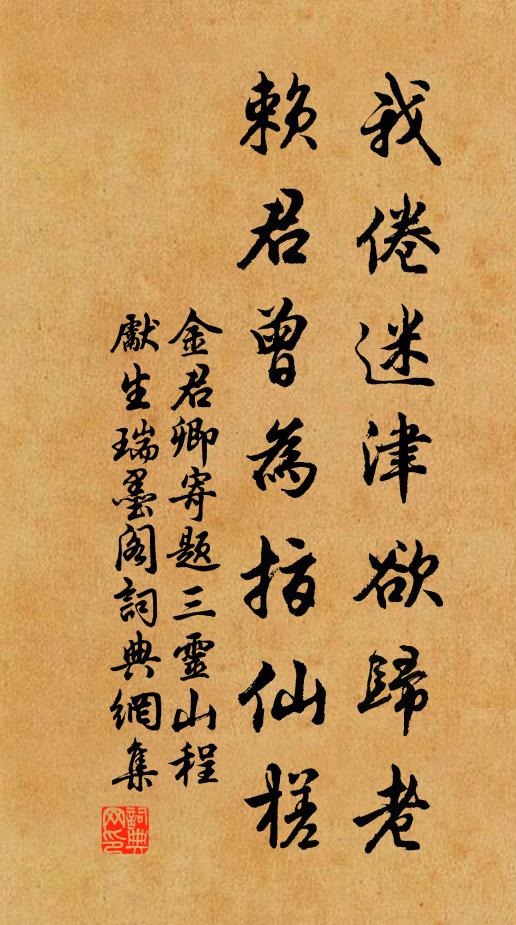 我倦迷津欲歸老
賴君曾為指仙槎
金君卿寄題三靈山程
獻生瑞墨閣詞典網集
詞典
网印